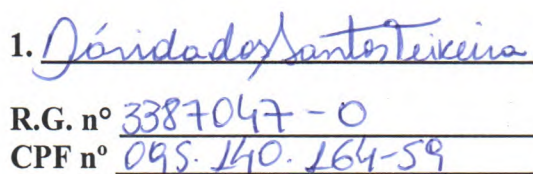 1. Dórida dos Santos Teixeira
R.G. nº 3387047-0
CPF nº 095.140.164-59